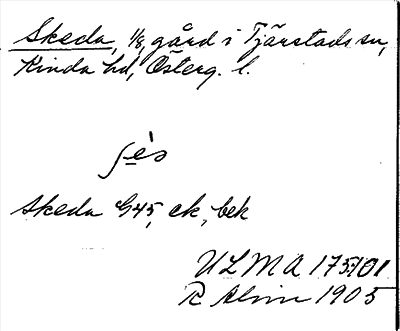 Skeda, 1/8 gård i Tjärstads sn,
Kinda hd, Österg. l.
Skeda G45, ek, bek
ULMA 175:101
R Alvin 1905